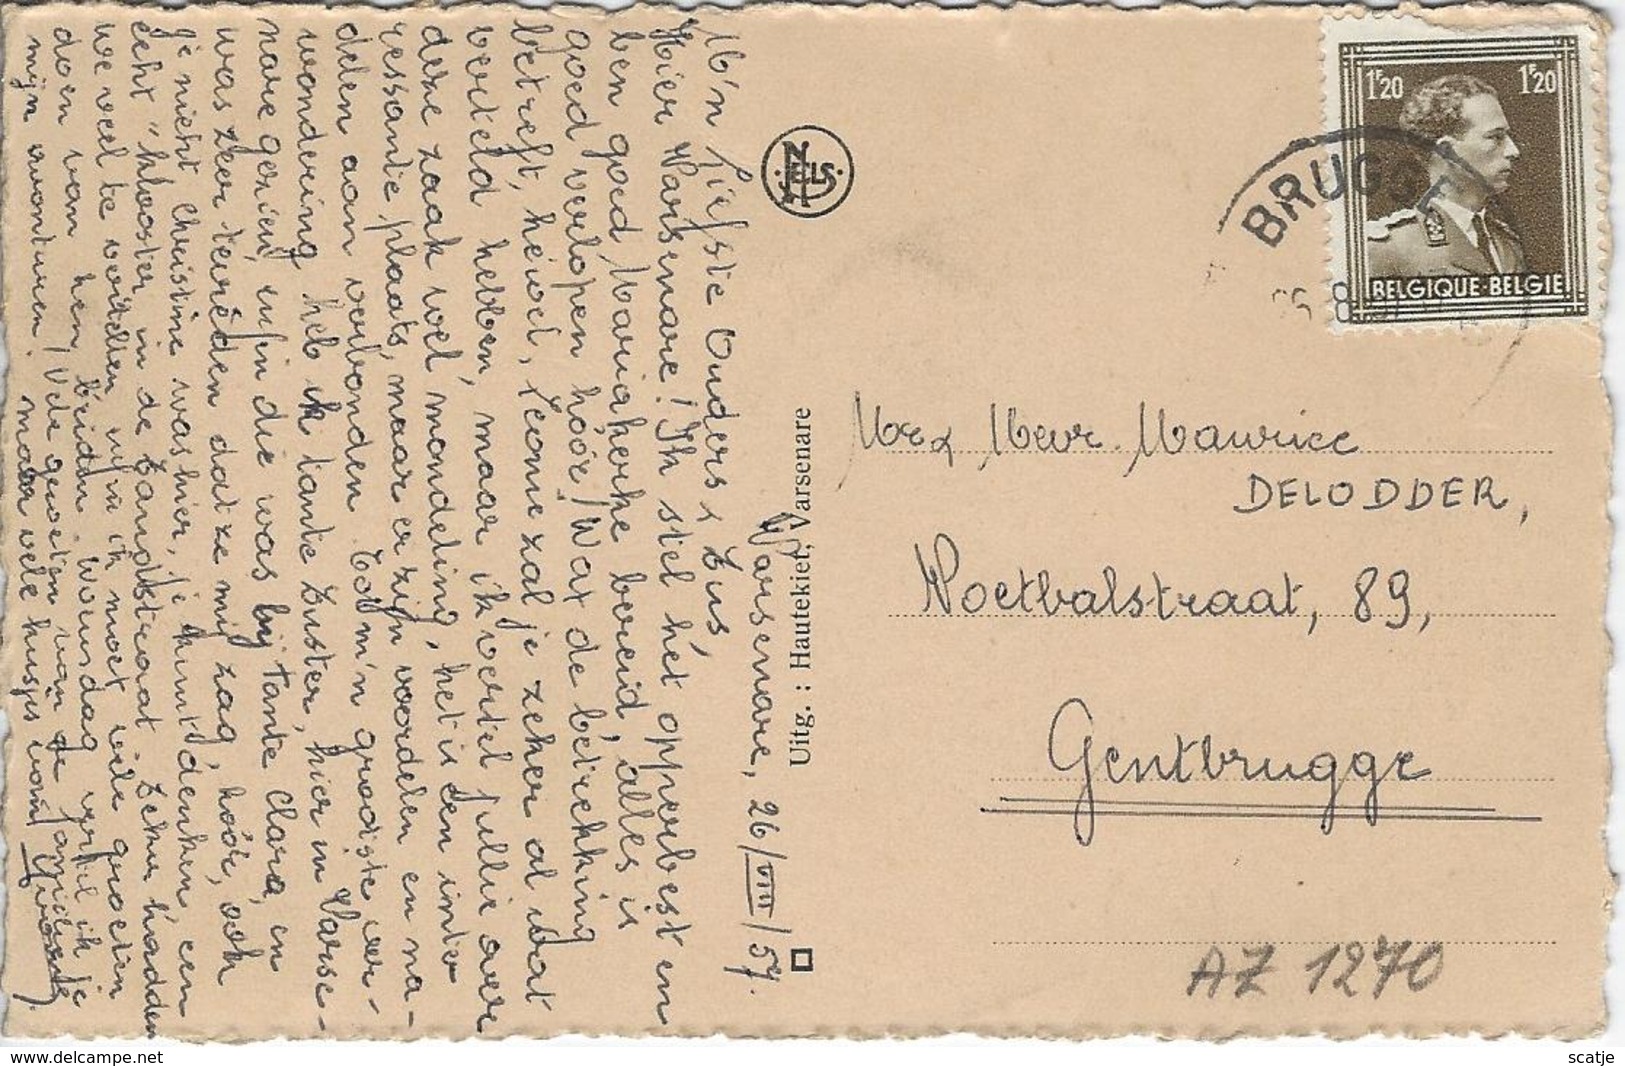 Varsenare, 26/VIII/57.
M'n Liefste Ouders & Zus,
Hier Varsenare! Ik stel het opperbest en
ben goed Mariakerke bereid, alles is
goed verlopen hóór! Wat de betrekking
betreft, hewel, Leonie zal je zeker al wat
verteld hebben, maar ik vertel jullie over
deze zaak wel mondeling, het is een inte-
ressante plaats, maar er zijn voordelen en na-
delen aan verbonden. Tot m'n grootste ver-
wondering heb ik tante Zuster, hier in Varse-
nare gezien, enfin die was bij Tante Clara, en
was zeer tevreden dat ze mij zag, hóór, ook
je nicht Christine was hier, je kunt denken, een
echt "klooster in de Zandstraat. Zeker hadden
we veel te vertellen nu ik moet vele groeten
doen van hen beiden. Woensdag vertel ik je
mijn avonturen. Vele groeten van de familie
maar vele kusjes van
NELS
Uitg. : Hautekiet, Varsenare
1F20 1F20
BELGIQUE-BELGIE
BRUGGE
Mr & Mevr. Maurice
DELODDER,
Voetbalstraat, 89,
Gentbrugge
AZ 1270
www.delcampe.net
scatje